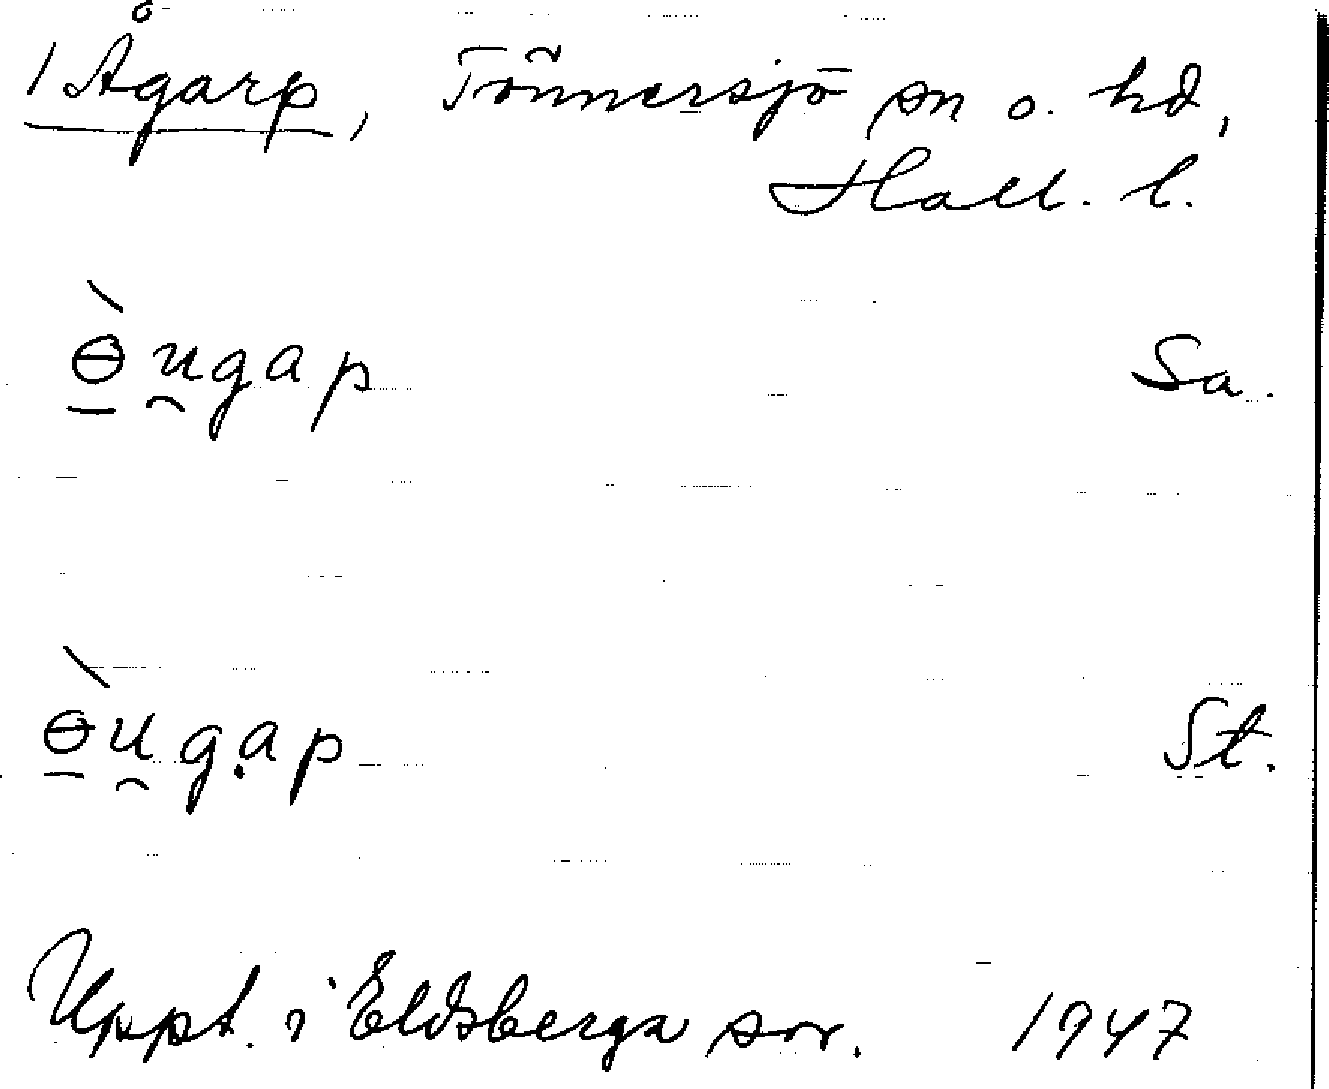 1 Ågarp, Tönnersjö sn o. hd,
Hall. l.
ɵ̀u̯gap Sa.
ɵ̀u̯gap St.
Uppt. i Eldsberga snr. 1947